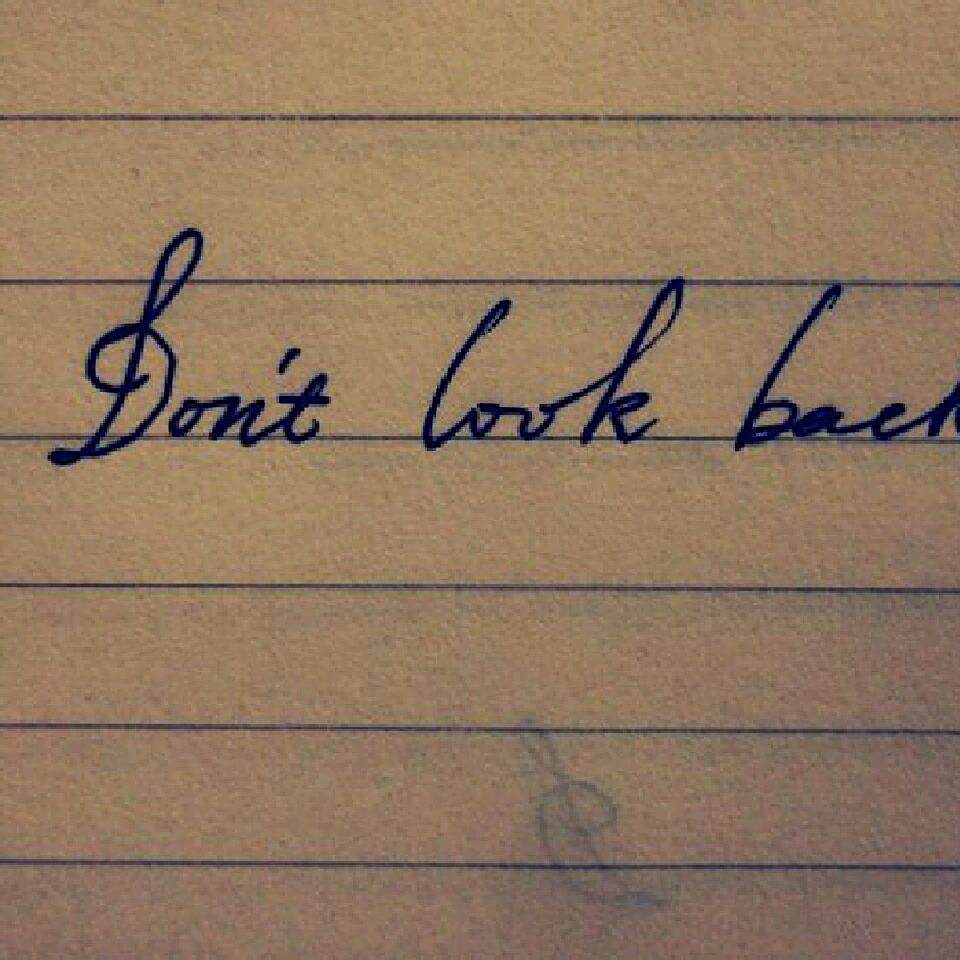 Don't look back